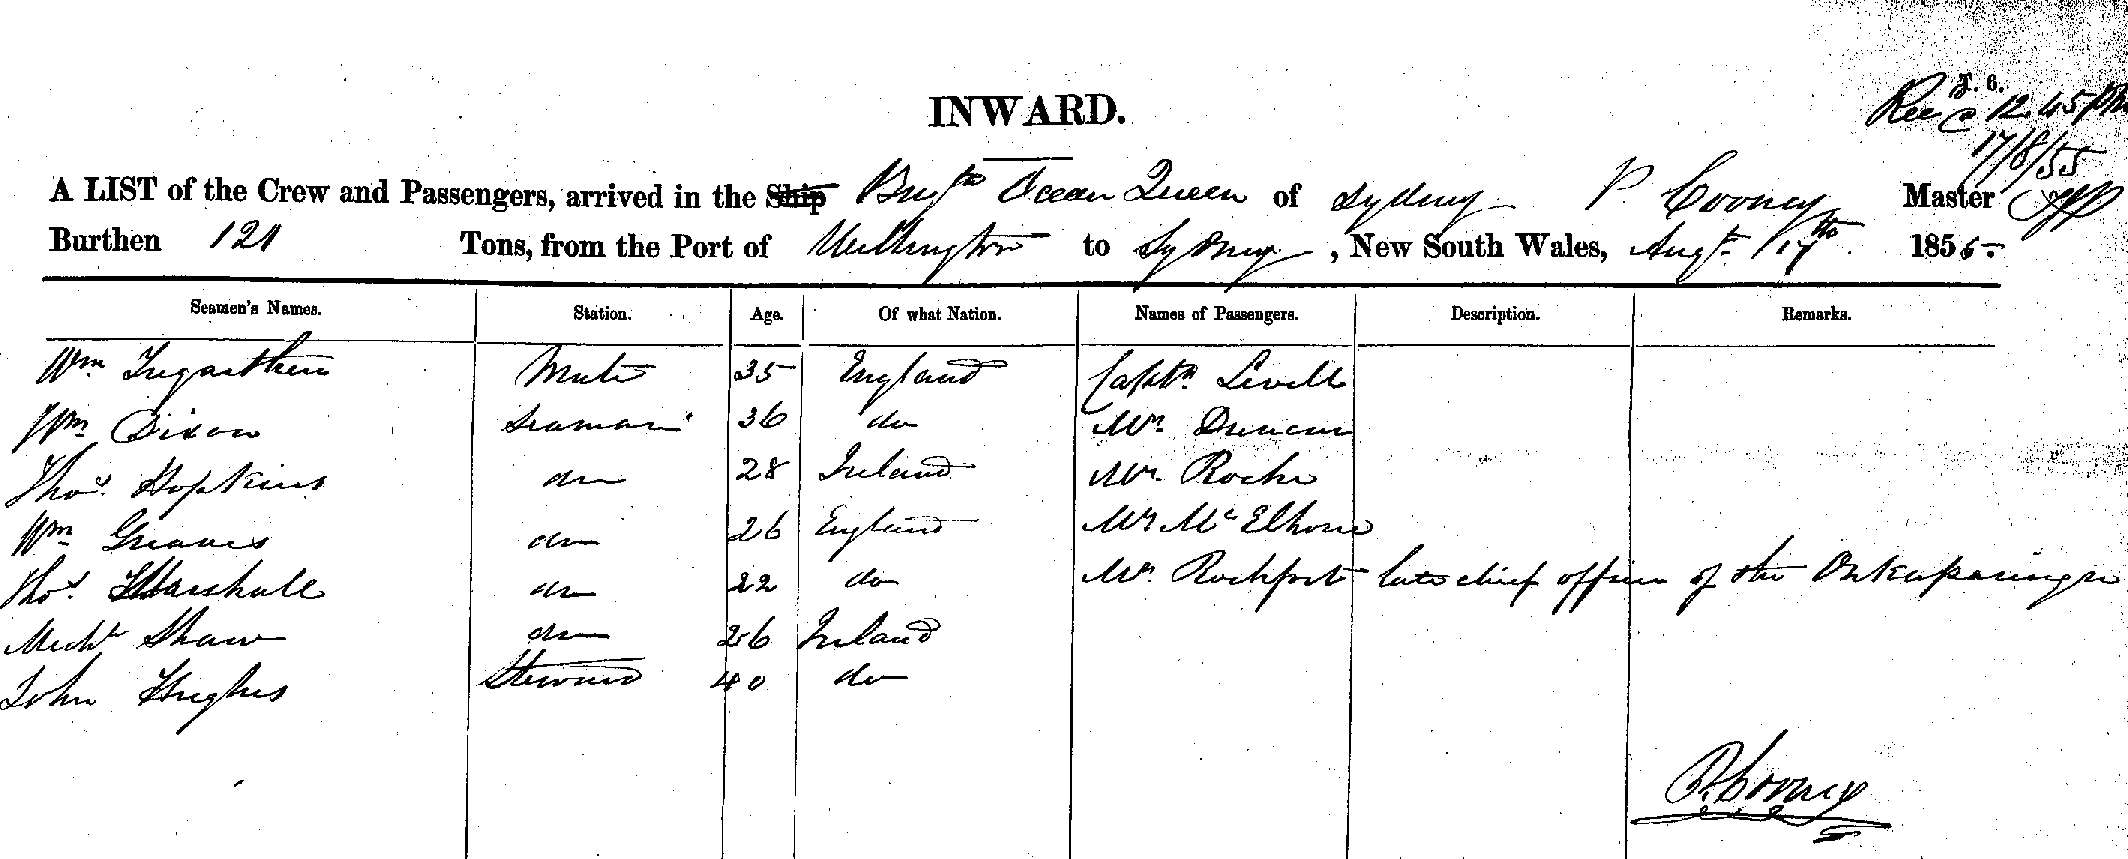 J. 6.
INWARD.
Recd 12.45 pm
17/8/55
A LIST of the Crew and Passengers, arrived in the Ship Brigtn Ocean Queen of Sydney P. Cooney Master
Burthen 121 Tons, from the Port of Wellington to Sydney, New South Wales, Augt. 17th 1855.
Seamen's Names. Station. Age. Of what Nation. Names of Passengers. Description. Remarks.
Wm Tregarthen Mate 35 England Captn Levell
Wm Dixon Seaman 36 do Mr. Duncan
Thos. Hopkins do 28 Ireland Mr. Roche
Wm Greaves do 26 England Mr McElhone
Thos. Marshall do 22 do Mr. Rochfort late chief officer of the Onkaparinga
Michl Shaw do 26 Ireland
John Hughes Steward 40 do
P. Cooney